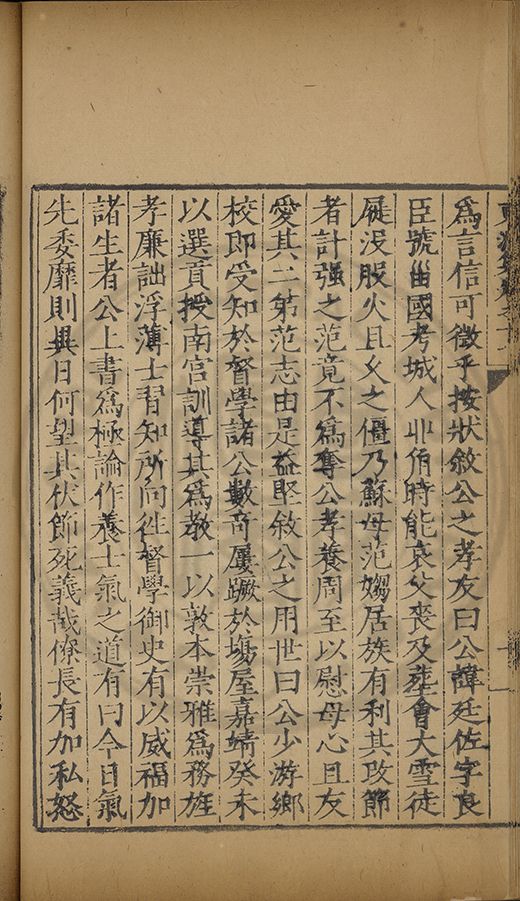 為言信可徵乎按狀敘公之孝友曰公諱廷佐字良
臣號甾國考城人丱角時能哀父喪及塟會大雪徒
屣没股火且父之僵乃蘇母范嫠居族有利其改節
者計強之范竟不為奪公孝養周至以慰母心且友
愛其二第范志由是益堅敘公之用世曰公少游鄉
校即受知於督學諸公數奇屢蹶於塲屋嘉靖癸未
以選貢授南宮訓導其為教一以敦本崇雅為務旌
孝廉詘浮薄士習知所向徃督學御史有以威福加
諸生者公上書為極論作養士氣之道有曰今日氣
先委靡則異日何望其伏節死義哉僚長有加私怒